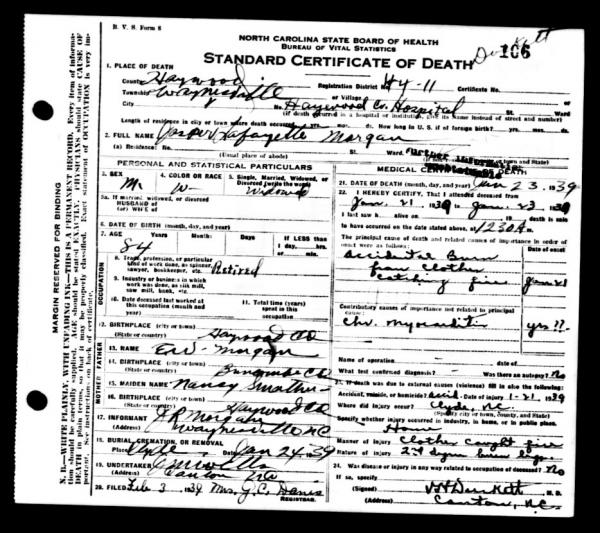 B. V. S. Form 6
NORTH CAROLINA STATE BOARD OF HEALTH
BUREAU OF VITAL STATISTICS
STANDARD CERTIFICATE OF DEATH
106
1. PLACE OF DEATH
County Haywood Registration District No. 44-11 Certificate No.
Township Waynesville or Village
City No. Haywood Co. Hospital St. Ward
(If death occurred in a hospital or institution, give its NAME instead of street and number)
Length of residence in city or town where death occurred yrs. mos. ds. How long in U. S. if of foreign birth? yrs. mos. ds.
2. FULL NAME Jasper Lafayette Morgan
(a) Residence: No. St. Ward.
(Usual place of abode)
PERSONAL AND STATISTICAL PARTICULARS
3. SEX M 4. COLOR OR RACE W 5. Single, Married, Widowed, or Divorced (write the word) Widowed
5a. If married, widowed, or divorced
HUSBAND of
(or) WIFE of
6. DATE OF BIRTH (month, day, and year)
7. AGE Years Months Days If LESS than 1 day, hrs. or min.
84
8. Trade, profession, or particular kind of work done, as spinner, sawyer, bookkeeper, etc. Retired
9. Industry or business in which work was done, as silk mill, saw mill, bank, etc.
10. Date deceased last worked at this occupation (month and year)
11. Total time (years) spent in this occupation
OCCUPATION
12. BIRTHPLACE (city or town) Haywood Co
13. NAME Morgan
14. BIRTHPLACE (city or town) Buncombe Co
15. MAIDEN NAME Nancy Smathers
16. BIRTHPLACE (city or town) Haywood Co
FATHER
MOTHER
17. INFORMANT J R Morgan
(Address) Waynesville NC
18. BURIAL, CREMATION, OR REMOVAL
Place Clyde Date Jan 24 39
19. UNDERTAKER
(Address) Canton
20. FILED Feb 3 1939 Mrs. J. C. Davis
REGISTRAR.
MEDICAL CERTIFICATE OF DEATH
21. DATE OF DEATH (month, day, and year) Jan 23, 1939
22. I HEREBY CERTIFY, That I attended deceased from
Jan. 21, 1939 to Jan. 23, 1939
I last saw h alive on 19 death is said
to have occurred on the date stated above, at 1230A m.
The principal cause of death and related causes of importance in order of onset were as follows: Date of onset
Accidental Burn
from clothes
catching fire Jan 21
Contributory causes of importance not related to principal cause:
Chr. myocarditis yrs ??
Name of operation Date of
What test confirmed diagnosis? Was there an autopsy? No
23. If death was due to external causes (violence) fill in also the following:
Accident, suicide, or homicide? accid. Date of injury 1-21, 1939
Where did injury occur? Clyde, N.C.
(Specify city or town, county, and State)
Specify whether injury occurred in industry, in home, or in public place.
Home
Manner of injury Clothes caught fire
Nature of injury 2nd degree burn
24. Was disease or injury in any way related to occupation of deceased? No
If so, specify
(Signed) M. D.
(Address) Canton, N.C.
MARGIN RESERVED FOR BINDING
N. B.—WRITE PLAINLY, WITH UNFADING INK—THIS IS A PERMANENT RECORD. Every item of information should be carefully supplied. AGE should be stated EXACTLY. PHYSICIANS should state CAUSE OF DEATH in plain terms, so that it may be properly classified. Exact statement of OCCUPATION is very important. See instructions on back of certificate.